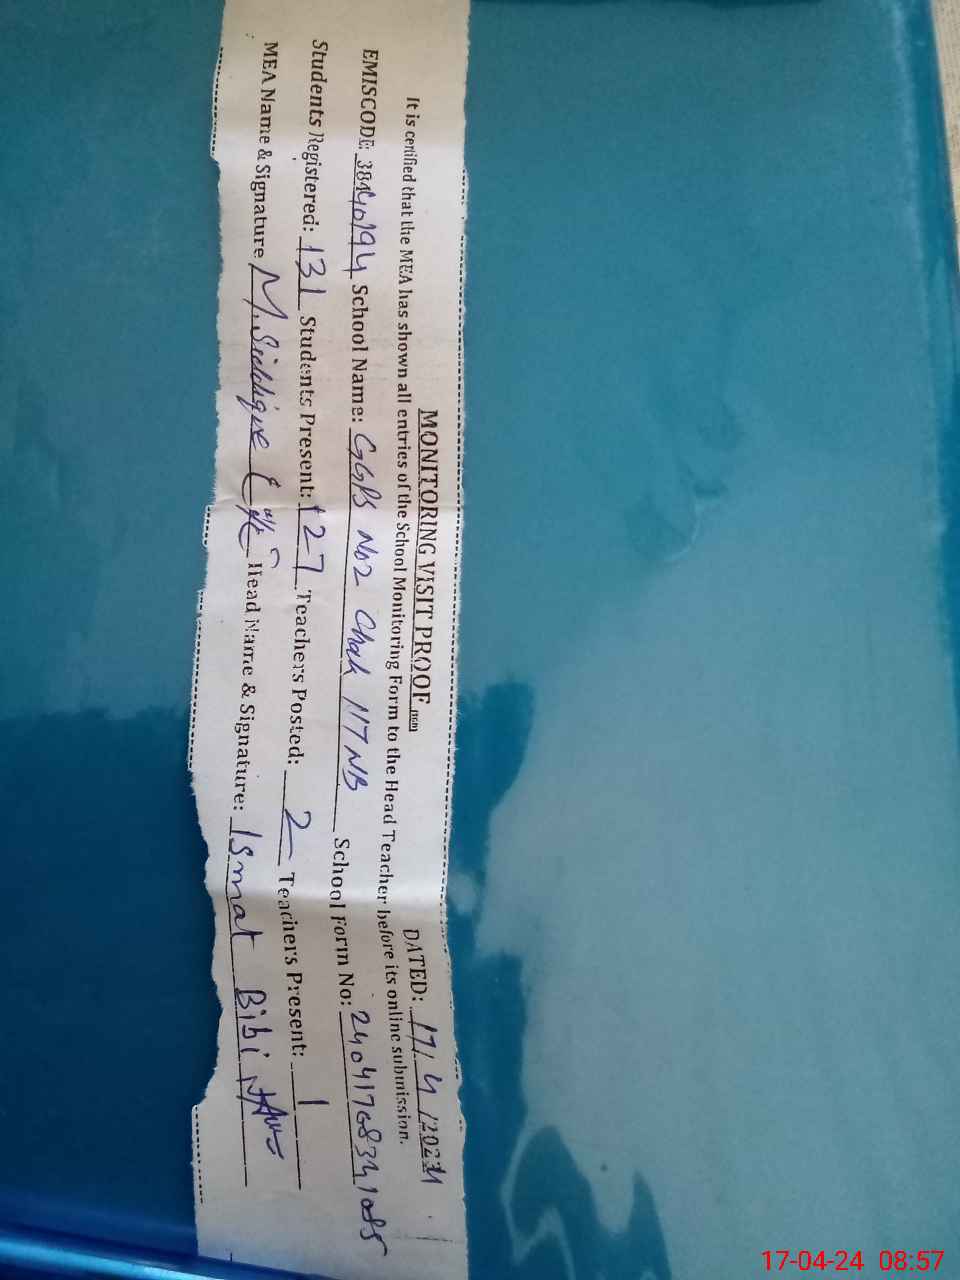 MONITORING VISIT PROOF
DATED: 17/4/2024
It is certified that the MEA has shown all entries of the School Monitoring Form to the Head Teacher before its online submission.
EMISCODE: 38440194 School Name: GGPS No2 Chak 117 NB School Form No:
Students Registered: 131 Students Present: 127 Teachers Posted: 2 Teachers Present: 1
MEA Name & Signature M. Siddique Head Name & Signature: Ismat Bibi
17-04-24 08:57